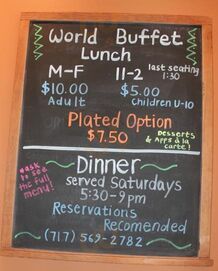 World Buffet
Lunch
M-F 11-2 last seating 1:30
$10.00 $5.00
Adult Children U-10
Plated Option
$7.50
Desserts
& Apps á la
Carte!
Dinner
*ask
to see
the full
menu!
served Saturdays
5:30-9pm
Reservations
Recomended
(717) 569-2782